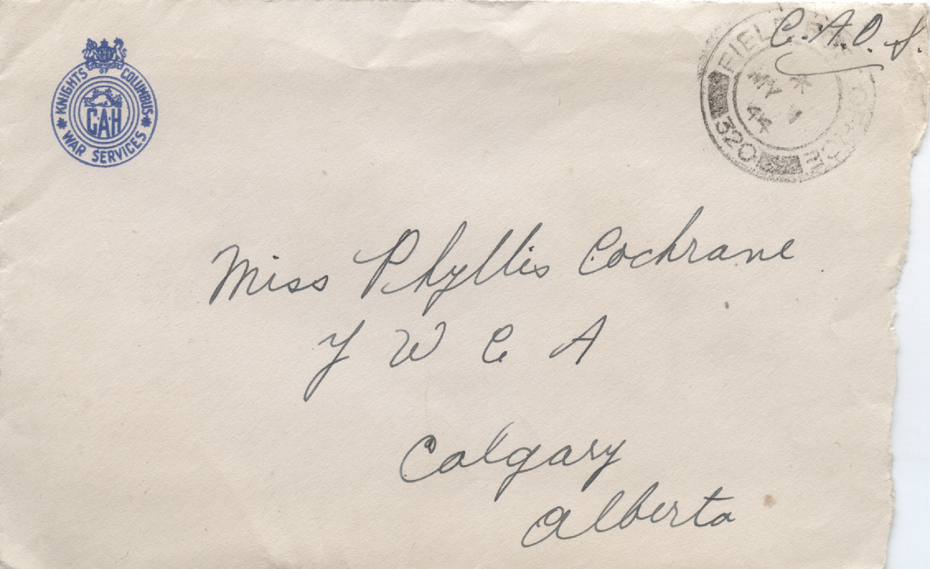 C.A.O.S.
FIELD
MY
44
320
KNIGHTS OF COLUMBUS
C·A·H
WAR SERVICES
Miss Phyllis Cochrane
Y W C A
Calgary
Alberta